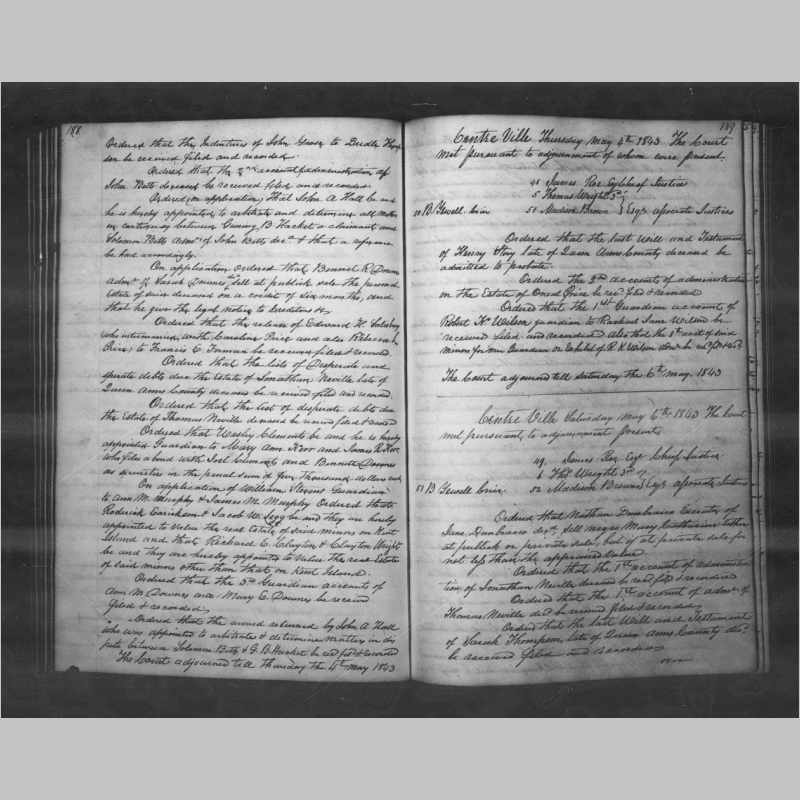 188
Ordered that the Indentures of John Green to Dudle
son be received filed and recorded
Ordered that the 2nd account of administration of
John Betts deceased be received filed and recorded
Ordered (on application) that John A Hall be and
he is hereby appointed to arbitrate and determine all matters
in controversy between B Hacket a claimant and
Solomon Betts Admr of John Betts decd & that a
be had accordingly.
On application ordered that Bennet R Downes
Admr of Sarah Downes sell at publick sale the personal
estate of said deceased on a credit of six months, and
that he give the legal notice to Creditors &c
Ordered that the release of Edward H
who intermarried with Caroline Price and also Rebecca
Price to Francis C Forman be received filed & recorded
Ordered that the lists of Desperate and
sperate debts due the Estate of Jonathan Neville late of
Queen Anns County deceased be received filed and record.
Ordered that the list of desperate debts due
the Estate of Thomas Neville deceased be received filed & record
Ordered that Wesley Clements be and he is hereby
appointed Guardian to Mary Ann Kerr and James R Kerr
who files a bond with Joel Clements and Bennett Downes
as securities in the penal sum of Four Thousand dollars
On application of William Stevens Guardian
to Ann M Murphy & James M. Murphy Ordered that
Roderick Earickson & Jacob W. Legg be and they are hereby
appointed to value the real Estate of said minors on Kent
Island and that Richard C. Clayton & Clayton Wright
be and they are hereby appointed to value the real Estate
of said minors other than that on Kent Island
Ordered that the 3rd Guardian accounts of
Ann M Downes and Mary E. Downes be receivd
filed & recorded,
Ordered that the award returned by John A Hall
who was appointed to arbitrate & determine matters in dis
pute between Solomon Betts & G. B. Hacket be recd filed & recorded
The Court adjourned till Thursday the 4th May 1843
189
Centre Ville Thursday May 4th 1843 The Court
met pursuant to adjournment of whom were present.
48 James Roe Esq Chief Justice
5 Thomas Wright 3rd
50 B. Gewell Crier 51 Madison Brown } Esqs associate Justices
Ordered that the last will and Testament
of Henry late of Queen Anns County deceased be
admitted to probate.
Ordered the 2nd account of administration
on the Estate of Price be recd filed & recorded
Ordered that the 1st Guardian account of
Robert H. Wilson guardian to Rachel Jane Wilson be
received filed and recorded also that the 1st acct of said
minors former Guardian
The Court adjourned till saturday the 6th may. 1843
Centre Ville Saturday May 6th 1843 The Court
met pursuant to adjournment present
49 James Roe Esq Chief Justice
6 Thos Wright 3rd
51 B Gewell Crier. 52 Madison Brown } Esqs associate Justices
Ordered that Nathan Dunbracco Executor of
Jane Dunbracco decd sell negroes Mary Catharine
at publick or private sale, but if at private sale for
not less than the appraised value
Ordered that the 1st account of administra
tion of Jonathan Neville deceased be recd filed & recorded
Ordered that the 1st account of admn of
Thomas Neville decd be received filed & recorded.
Ordered that the last Will and Testament
of Sarah Thompson, late of Queen Anns County decd
be received filed and recorded